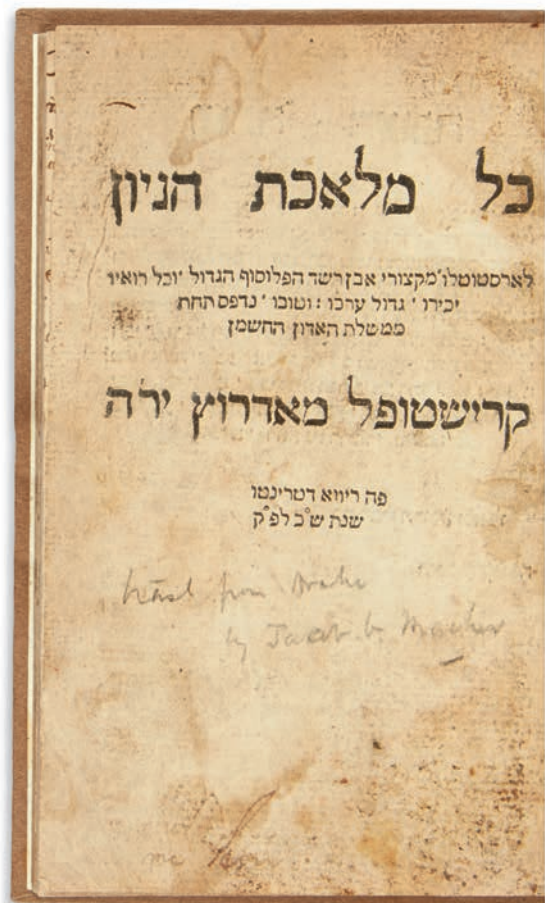 כל מלאכת הגיון
לארסטוטלו׳ מקצורי אבן רשד הפלוסוף הגדול ׳ וכל רואיו
יכירו ׳ גדול ערכו : וטובו ׳ נדפס תחת
ממשלת האדון החשמן
קרישטופל מאדרוץ ירה
פה ריווא דטרינטו
שנת ש״כ לפ״ק
transl from Arabic
by Jacob b. Machir